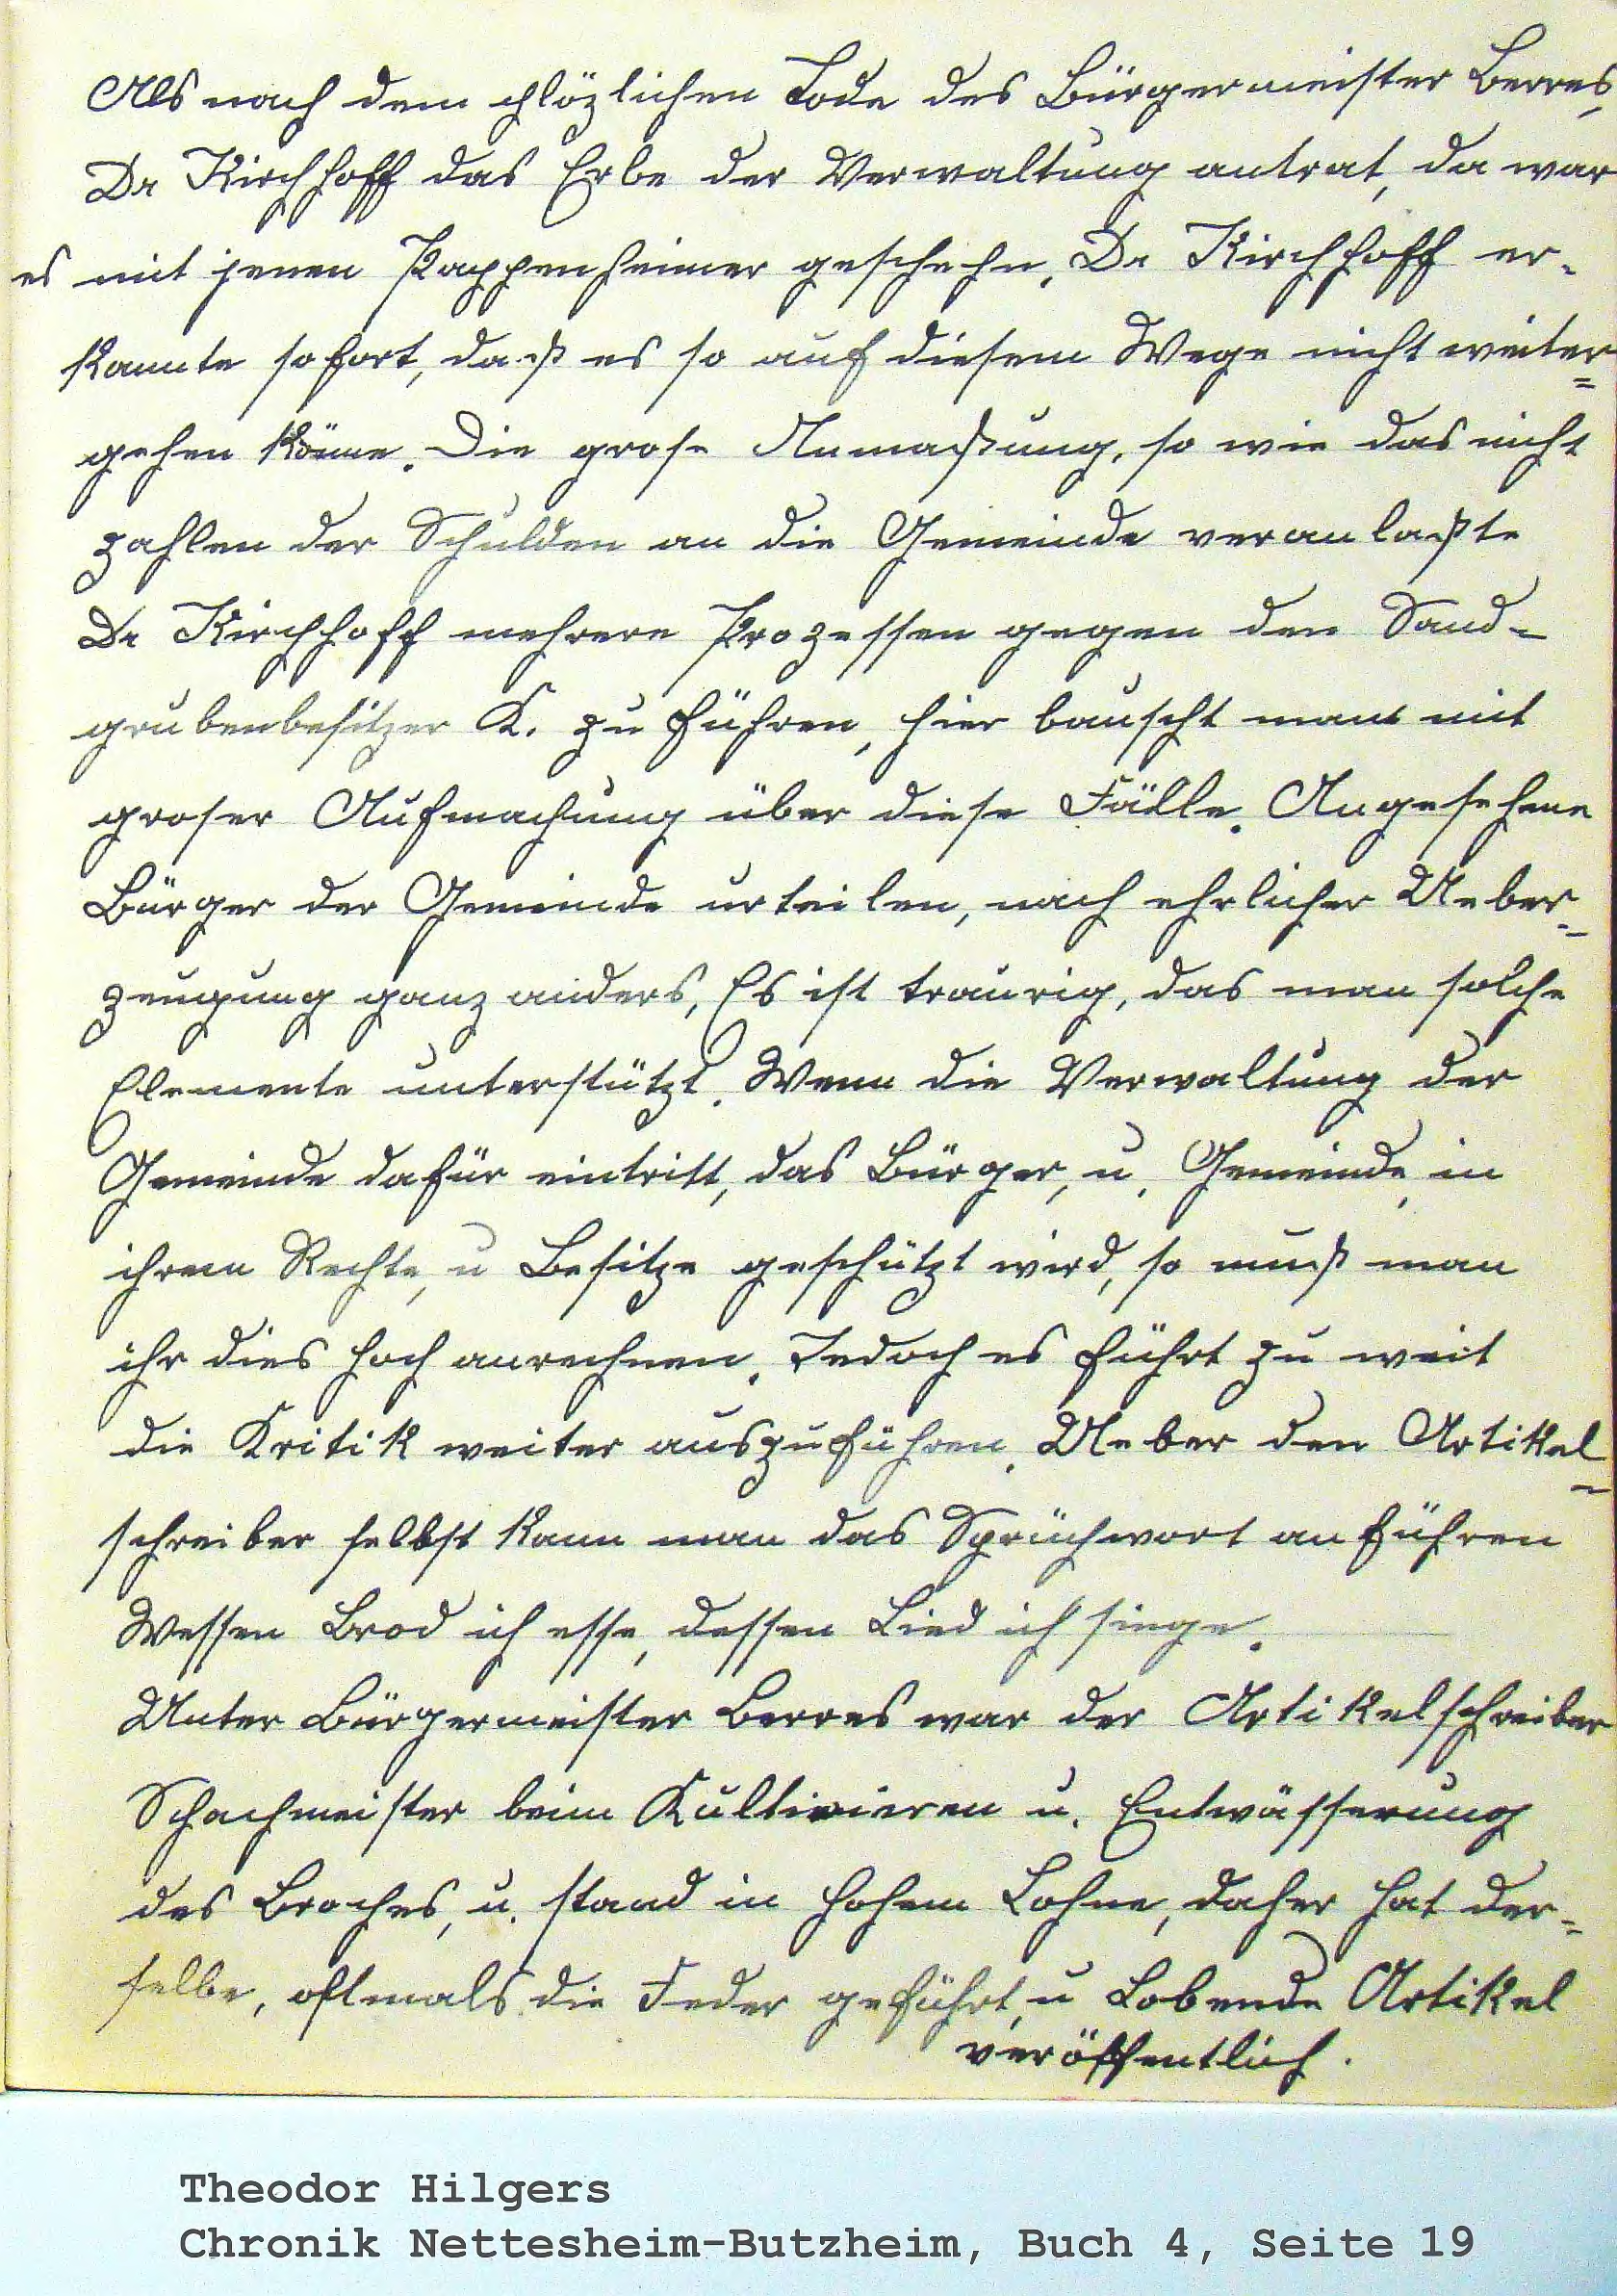 Als nach dem plözlichen Tode des Bürgermeister Berres,
Dr Kirchhoff das Erbe der Verwaltung antrat, da war
es mit jenen Pappenheimer geschehn. Dr Kirchhoff er-
kannte sofort, daß es so auf diesem Wege nicht weiter-
gehen könne. Die grose Anmaßung, so wie das nicht
zahlen der Schulden an die Gemeinde veranlaßte
Dr Kirchhoff mehrere Prozessen gegen den Sand-
grubenbesitzer K. zu führen, hier bauscht man mit
groser Aufmachung über diese Fälle. Angesehene
Bürger der Gemeinde urteilen, nach ehrlicher Ueber-
zeugung ganz anders, Es ist traurig, das man solche
Elemente unterstützt. Wenn die Verwaltung der
Gemeinde dafür eintritt, das Bürger, u. Gemeinde, in
ihrem Rechte, u Besitze geschützt wird, so muß man
ihr dies hoch anrechnen. Jedoch es führt zu weit
die Kritik weiter auszuführen. Ueber den Artikel-
schreiber selbst kann man das Sprüchwort anführen
Wessen Brod ich esse, dessen Lied ich singe.
Unter Bürgermeister Berres war der Artikelschreiber
Schachmeister beim Kultivieren u. Entwässerung
des Broches, u. stand in hohem Lohne, daher hat der-
selbe, oftmals die Feder geführt, u Lobende Artikel
veröffentlich.
Theodor Hilgers
Chronik Nettesheim-Butzheim, Buch 4, Seite 19